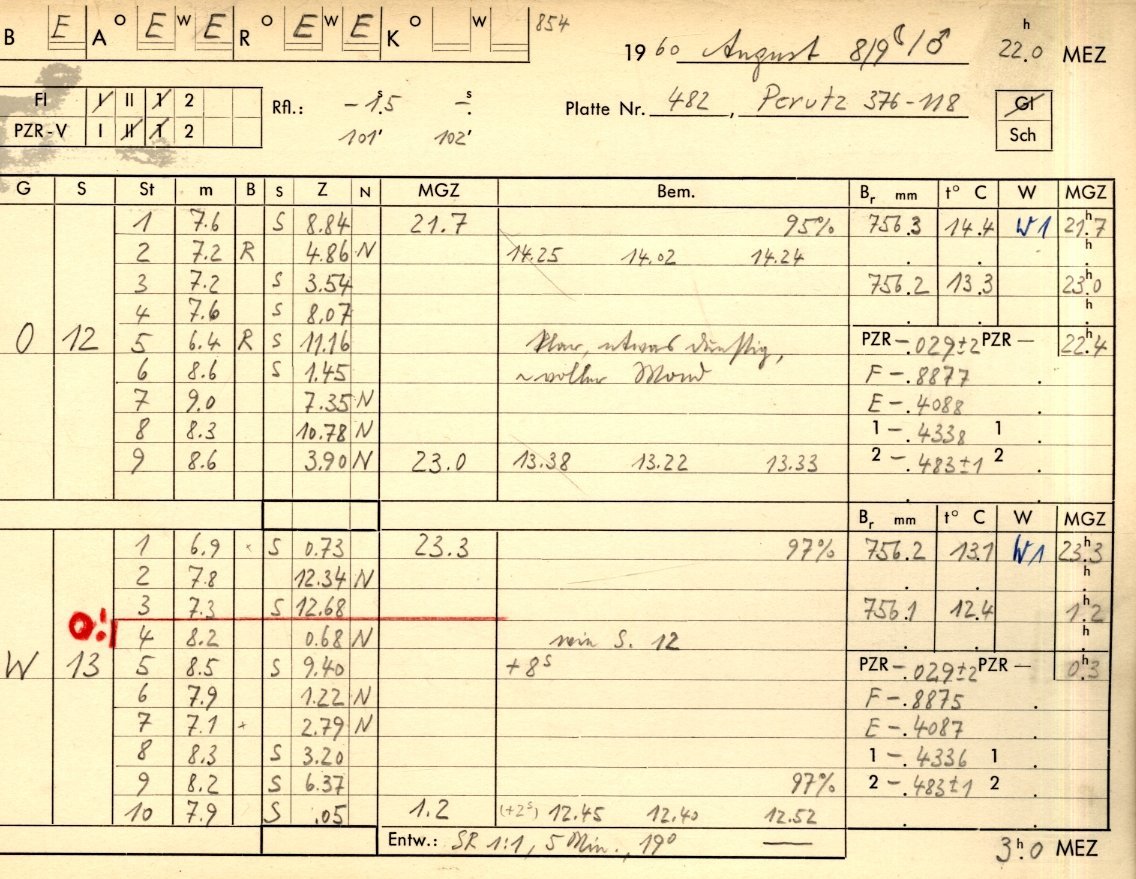 B E A O E W E R O E W E K O W 854
1960 August 8/9 ☾/♂ 22.0 h MEZ
Fl I II 1 2
PZR-V I II 1 2
Rfl.: -1.5 s - s
101' 102'
Platte Nr. 482, Perutz 376-118
Gl
Sch
G S St m B S Z N MGZ Bem. Br mm t° C W MGZ
1 7.6 S 8.84 21.7 95% 756.3 14.4 W1 21.7 h
2 7.2 R 4.86 N 14.25 14.02 14.24 . . . h
3 7.2 S 3.54 756.2 13.3 23.0 h
4 7.6 S 8.07 . . . h
O 12 5 6.4 R S 11.16 klar, etwas dunstig, PZR -.029±2 PZR - 22.4 h
6 8.6 S 1.45 ~voller Mond F -.8877 .
7 9.0 7.35 N E -.4088 .
8 8.3 10.78 N 1 -.4338 1 .
9 8.6 3.90 N 23.0 13.38 13.22 13.33 2 -.483±1 2 .
Br mm t° C W MGZ
1 6.9 S 0.73 23.3 97% 756.2 13.1 W1 23.3 h
2 7.8 12.34 N . . . h
3 7.3 S 12.68 756.1 12.4 1.2 h
O!
4 8.2 0.68 N wie S. 12 . . . h
W 13 5 8.5 S 9.40 +8 s PZR -.029±2 PZR - 0.3 h
6 7.9 1.22 N F -.8875 .
7 7.1 + 2.79 N E -.4087 .
8 8.3 S 3.20 1 -.4336 1 .
9 8.2 S 6.37 97% 2 -.483±1 2 .
10 7.9 S .05 1.2 (+2 s) 12.45 12.40 12.52 . .
Entw.: SR 1:1, 5 Min., 19° —
3.0 h MEZ